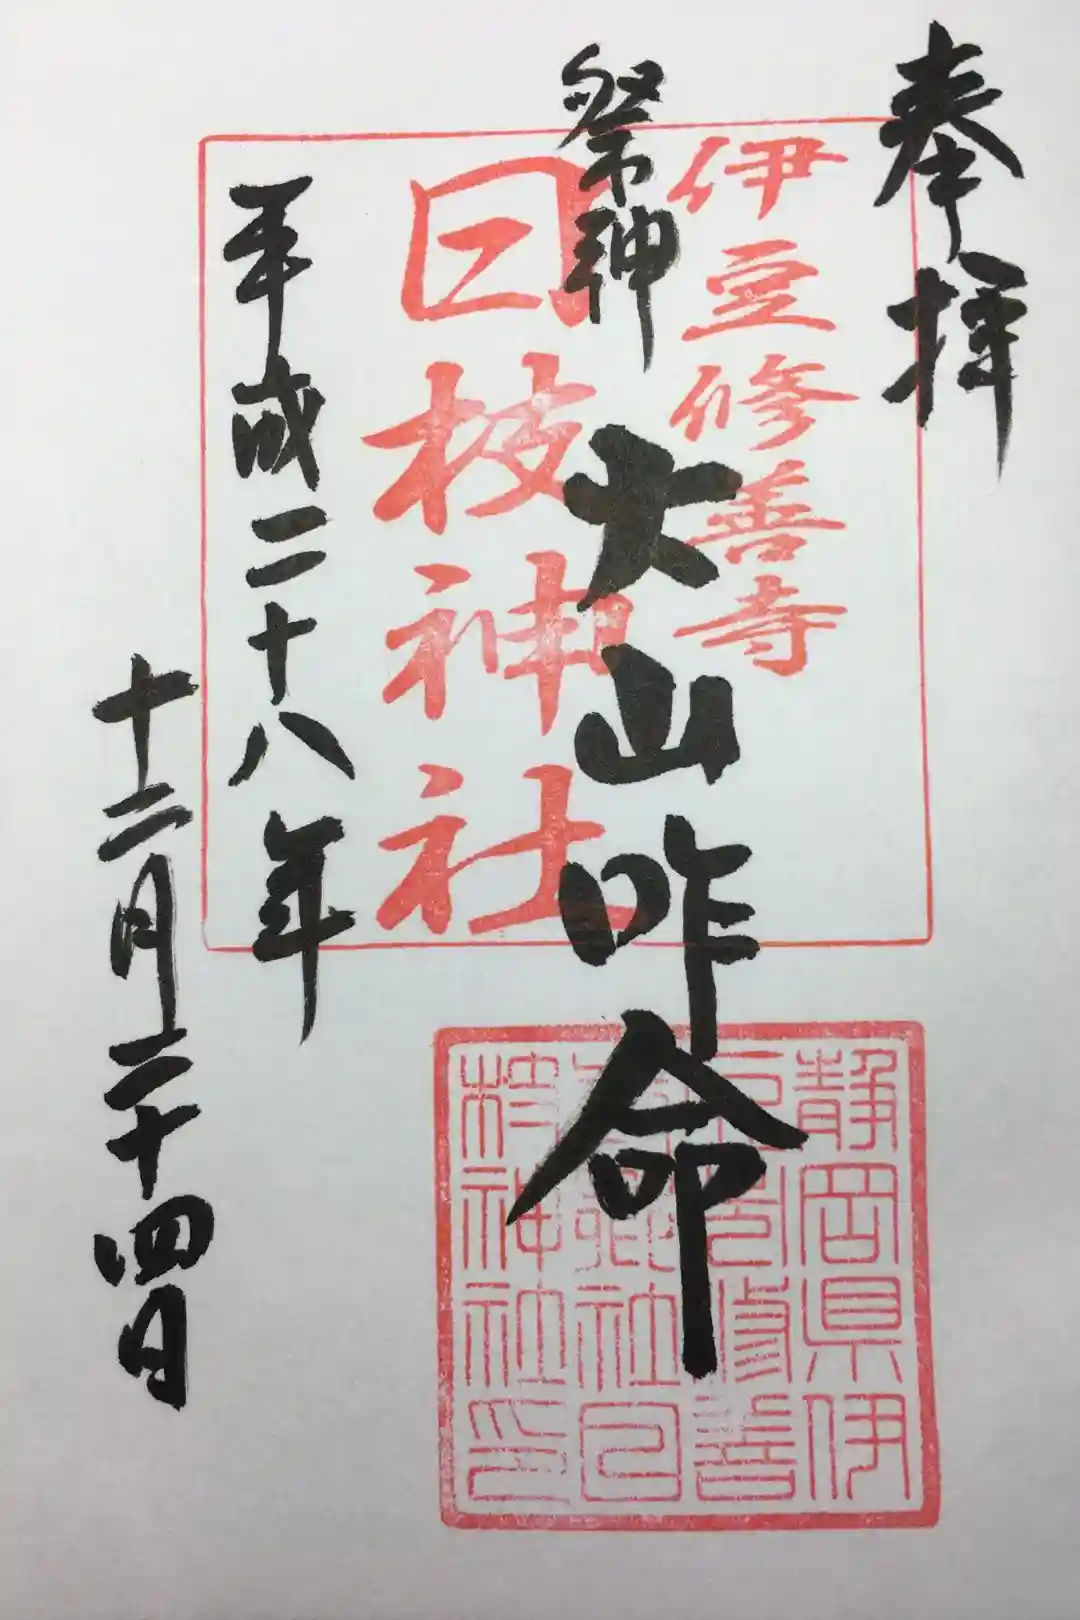 奉拝
伊豆修善寺
祭神 大山咋命
日枝神社
平成二十八年
十二月二十四日
静岡県伊
豆国修善
寺鎮社日
枝神社印